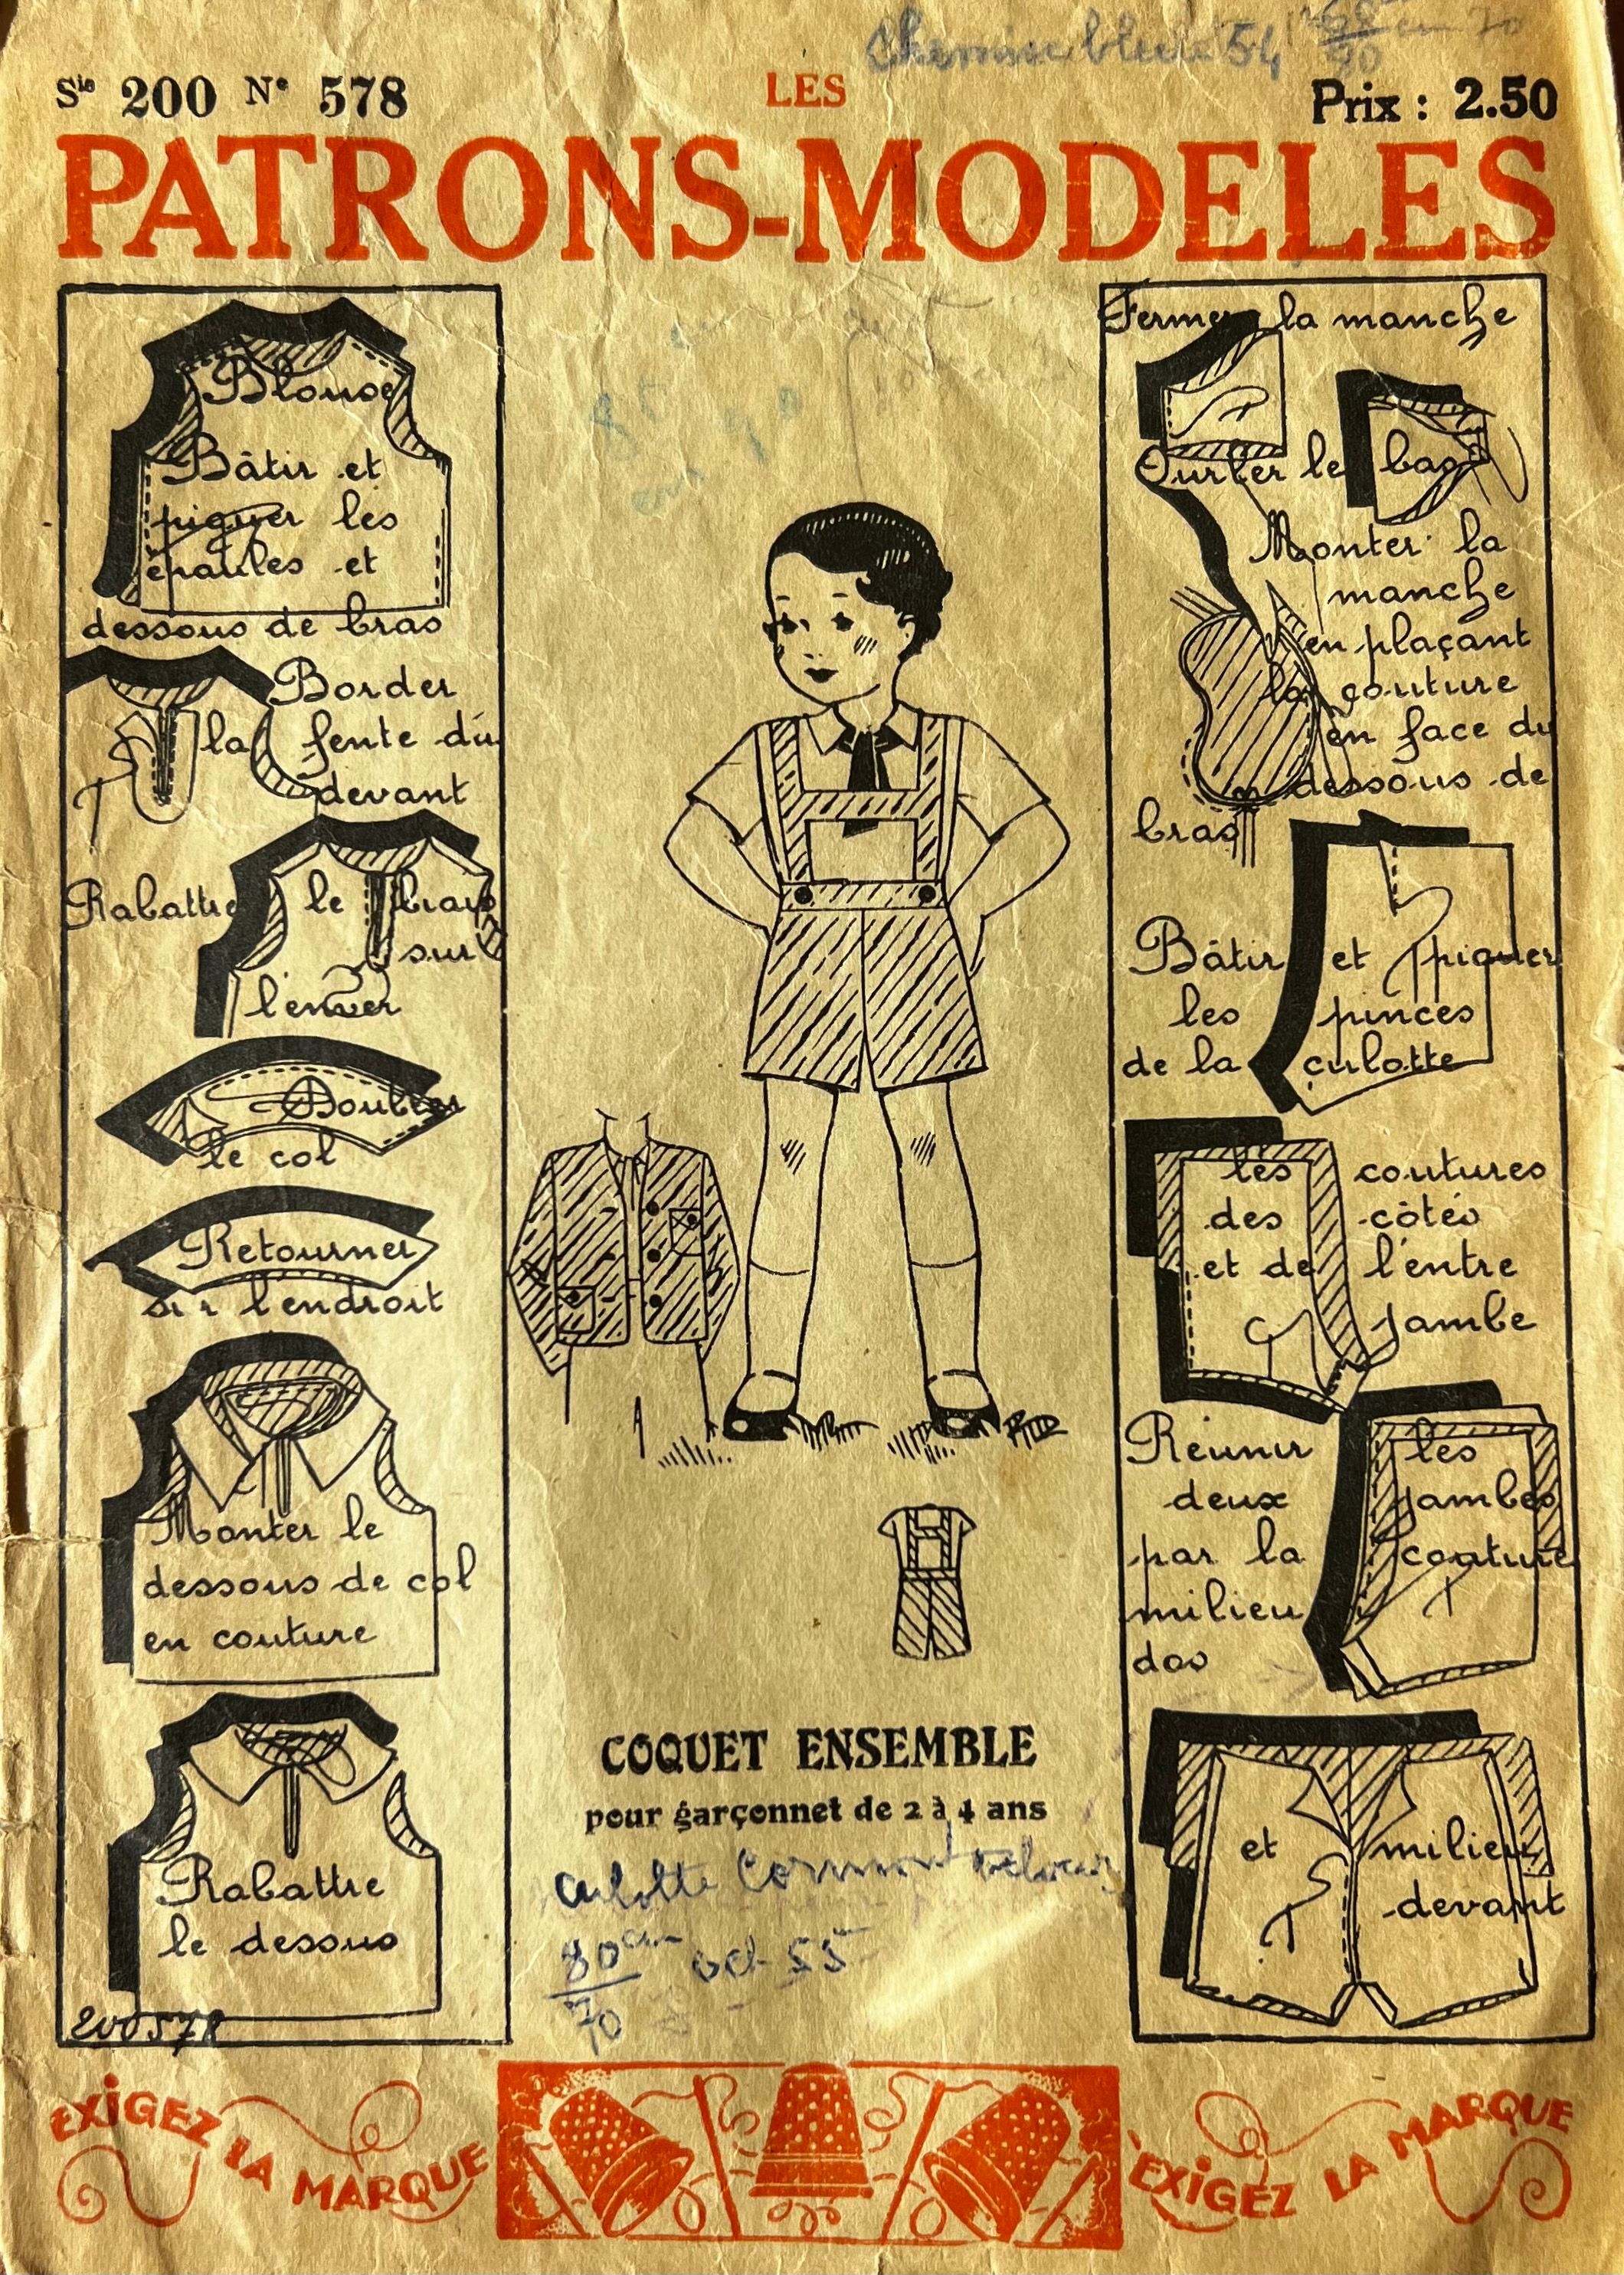 Chemise bleue 54
Sie 200 N° 578
LES
Prix : 2.50
PATRONS-MODELES
Blouse
Bâtir et
piquer les
épaules et
dessous de bras
Border
la fente du
devant
Rabattre le biais
sur
l'enver
Doubler
le col
Retourner
sur l'endroit
Monter le
dessous de col
en couture
Rabattre
le dessus
200578
COQUET ENSEMBLE
pour garçonnet de 2 à 4 ans
culotte
80 cm oct 55
70
Fermer la manche
Ourler le bas
Monter la
manche
en plaçant
la couture
en face du
dessous de
bras
Bâtir et piquer
les pinces
de la culotte
les coutures
des côtés
et de l'entre
jambe
Réunir les
deux jambes
par la couture
milieu
dos
et milieu
devant
EXIGEZ LA MARQUE
EXIGEZ LA MARQUE